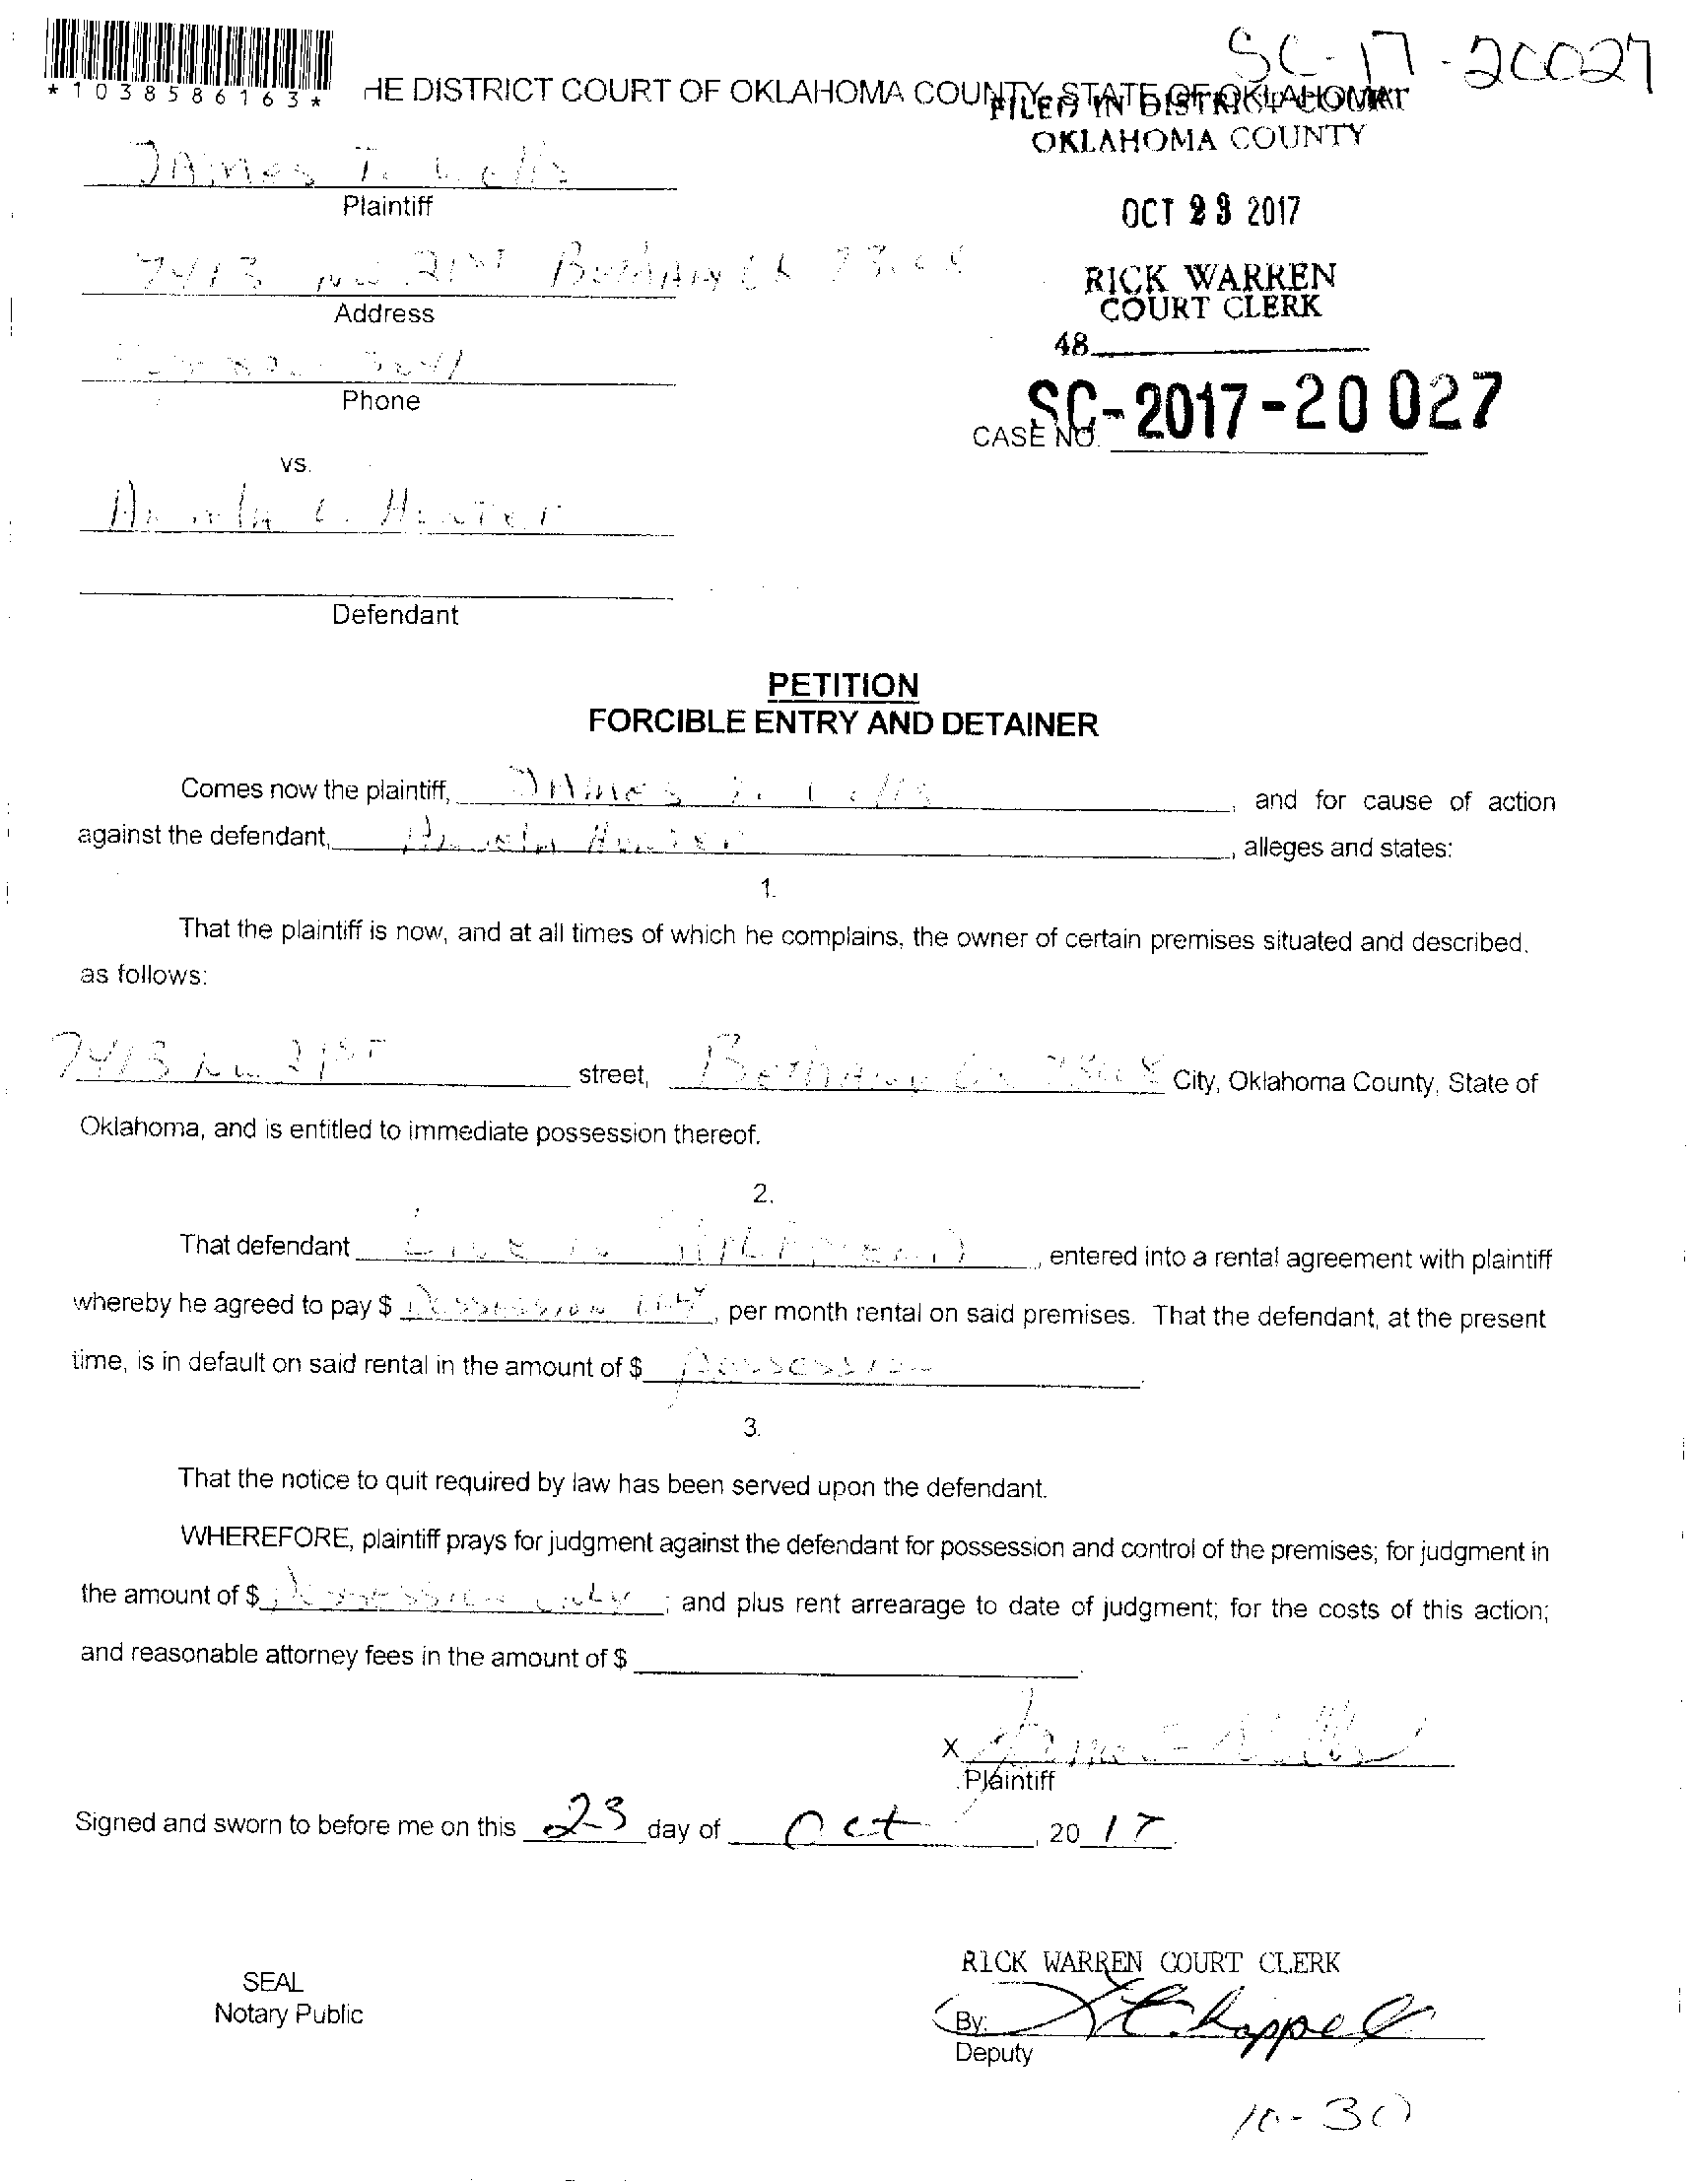 SC-17-20027
*1038586163*
HE DISTRICT COURT OF OKLAHOMA COUNTY, STATE OF OKLAHOMA
FILED IN DISTRICT COURT
OKLAHOMA COUNTY
James T. Wells
Plaintiff
OCT 23 2017
7413 NW 21ST Bethany OK 73008
Address
RICK WARREN
COURT CLERK
48
Phone
CASE NO. SC-2017-20027
vs.
Hunter
Defendant
PETITION
FORCIBLE ENTRY AND DETAINER
Comes now the plaintiff, James T. Wells, and for cause of action
against the defendant, Hunter, alleges and states:
1.
That the plaintiff is now, and at all times of which he complains, the owner of certain premises situated and described.
as follows:
7413 NW 21ST street, Bethany OK 73008 City, Oklahoma County, State of
Oklahoma, and is entitled to immediate possession thereof.
2.
That defendant Live in, entered into a rental agreement with plaintiff
whereby he agreed to pay $ Possession only, per month rental on said premises. That the defendant, at the present
time, is in default on said rental in the amount of $ Possession
3.
That the notice to quit required by law has been served upon the defendant.
WHEREFORE, plaintiff prays for judgment against the defendant for possession and control of the premises; for judgment in
the amount of $ Possession only; and plus rent arrearage to date of judgment; for the costs of this action;
and reasonable attorney fees in the amount of $
X James Wells
Plaintiff
Signed and sworn to before me on this 23 day of Oct, 2017
SEAL
Notary Public
RICK WARREN COURT CLERK
By: Chappell
Deputy
10-30